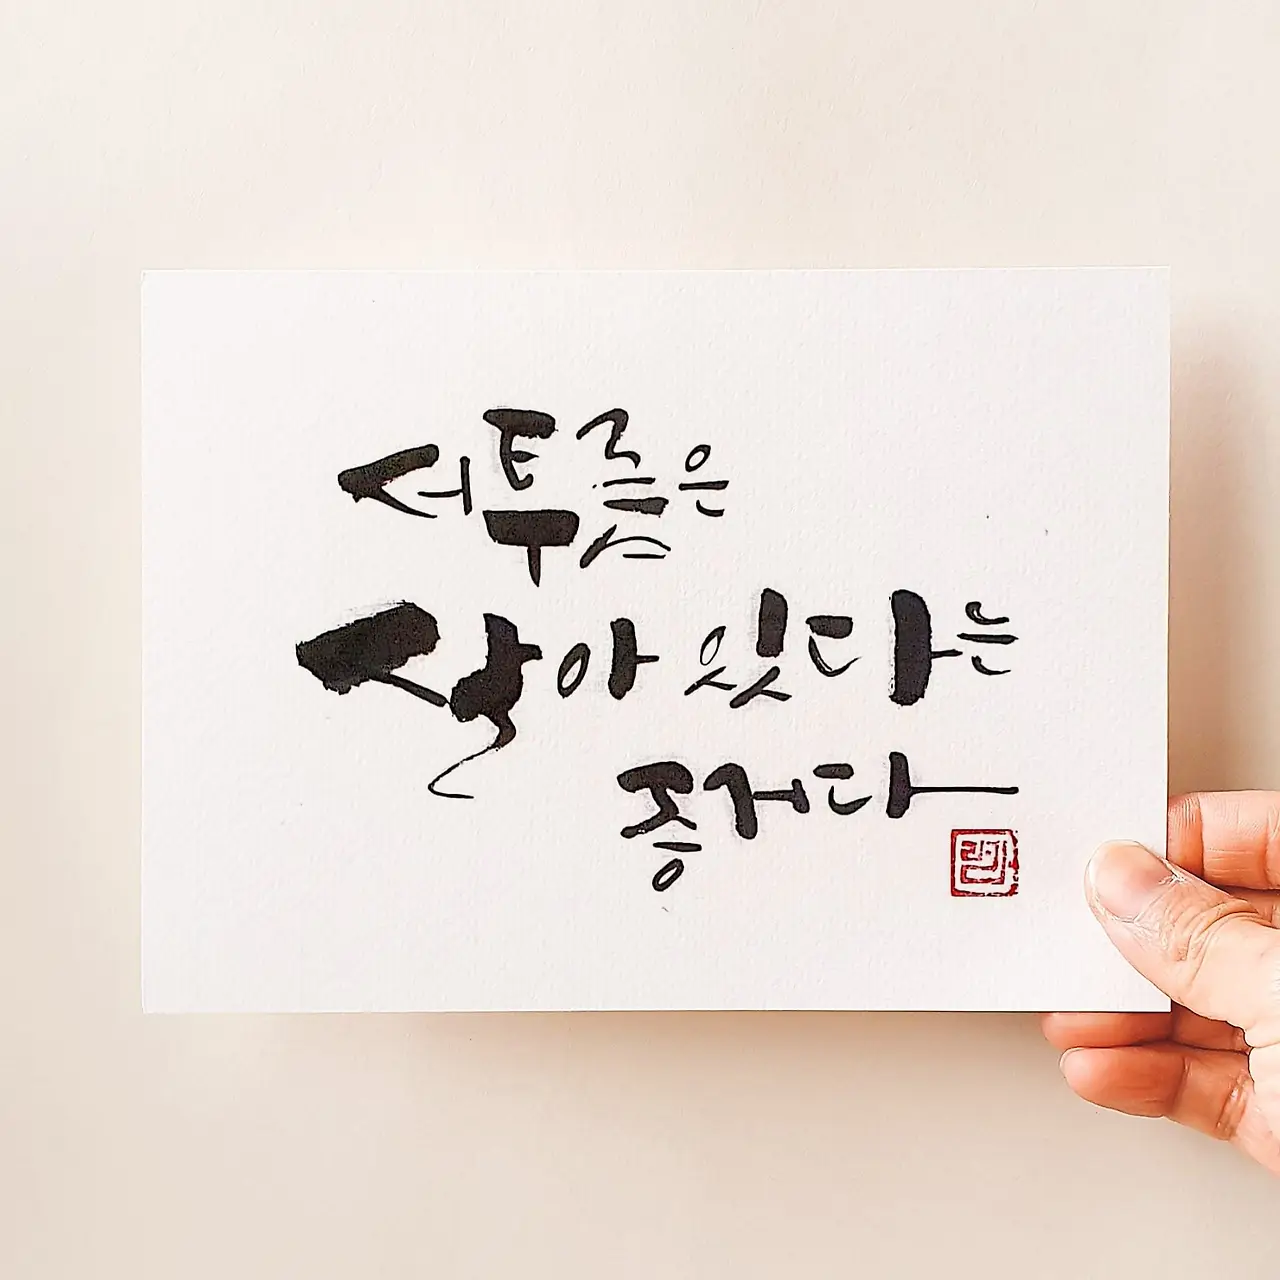 서투름은
살아 있다는
증거다